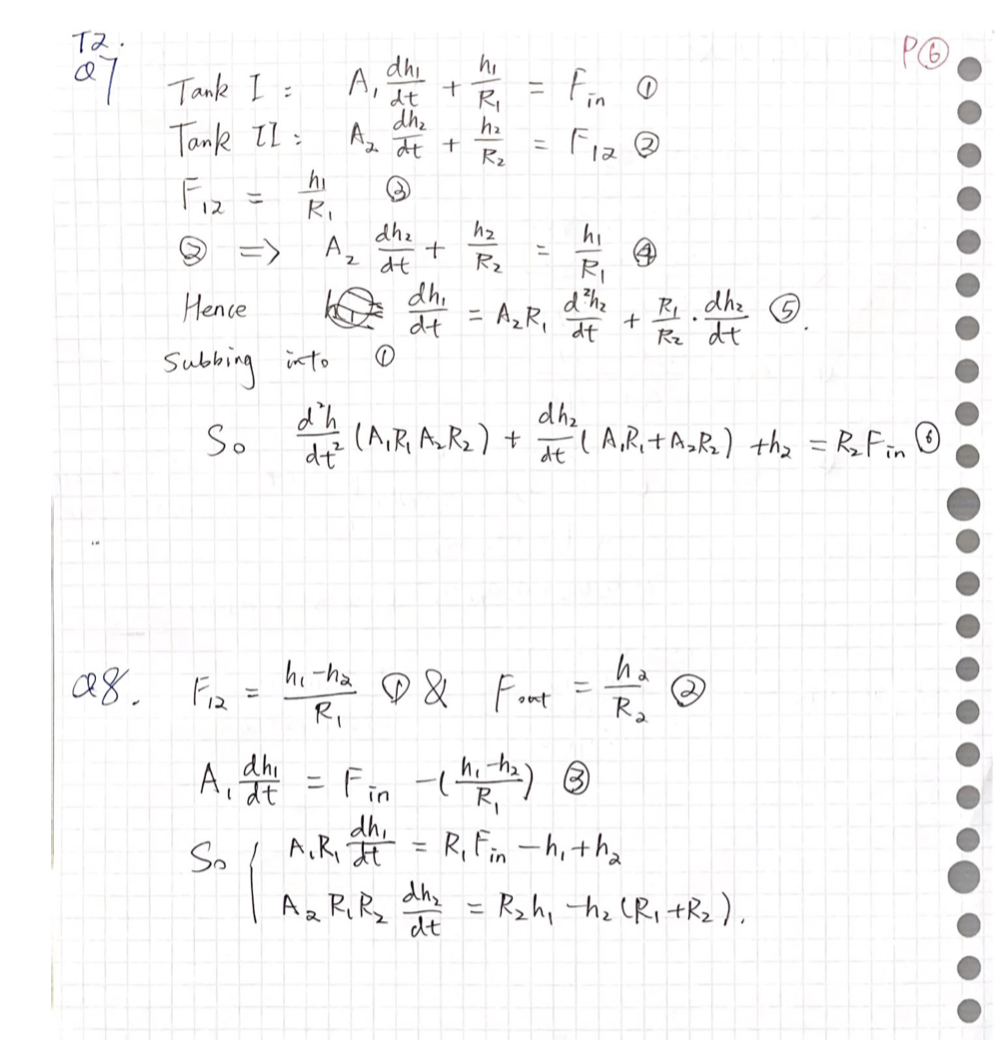 T2.
P⑥
Q7
Tank I : A₁ dh₁/dt + h₁/R₁ = Fin ①
Tank II : A₂ dh₂/dt + h₂/R₂ = F₁₂ ②
F₁₂ = h₁/R₁ ③
② => A₂ dh₂/dt + h₂/R₂ = h₁/R₁ ④
Hence dh₁/dt = A₂R₁ d²h₂/dt + R₁/R₂ · dh₂/dt ⑤.
Subbing into ①
So d²h/dt² (A₁R₁A₂R₂) + dh₂/dt (A₁R₁+A₂R₂) + h₂ = R₂Fin ⑥
Q8. F₁₂ = (h₁-h₂)/R₁ ① & Fout = h₂/R₂ ②
A₁ dh₁/dt = Fin -((h₁-h₂)/R₁) ③
So { A₁R₁ dh₁/dt = R₁Fin - h₁ + h₂
A₂R₁R₂ dh₂/dt = R₂h₁ - h₂(R₁+R₂).